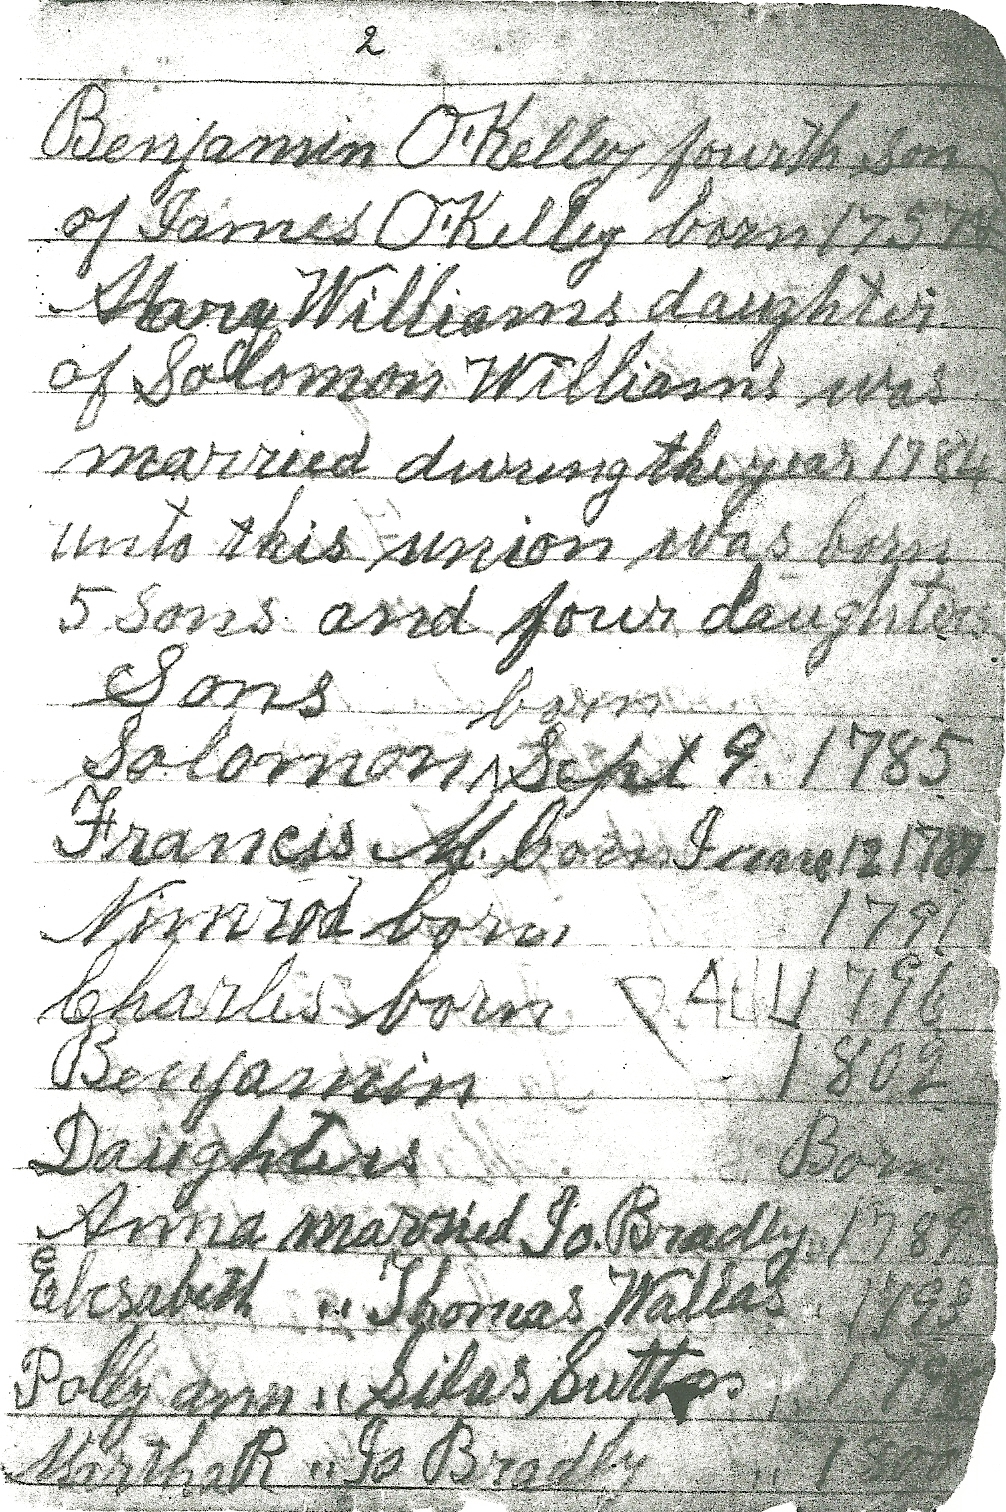 2
Benjamin O'Kelley fourth son
of James O'Kelley born 1757
Mary Williams daughter
of Solomon Williams was
married during the year 1784
unto this union was born
5 Sons and four daughters
Sons born
Solomon ^ Sept 9. 1785
Francis M. born June 12 1787
Nimrod born 1791
Charles born 1796
Benjamin 1802
Daughters Born
Anna married Jo. Bradley 1789
Elizabeth " Thomas Wallas " 1793
Polly ann " Silas Sutton "
Martha R " Jo Bradly " 1800